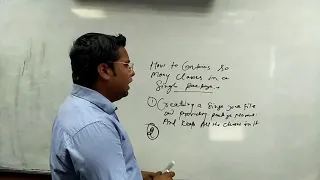 How to Contains so
many classes in a
Single package.
① Creating a Single java file
and providing package name
And keep All the classes in it
②